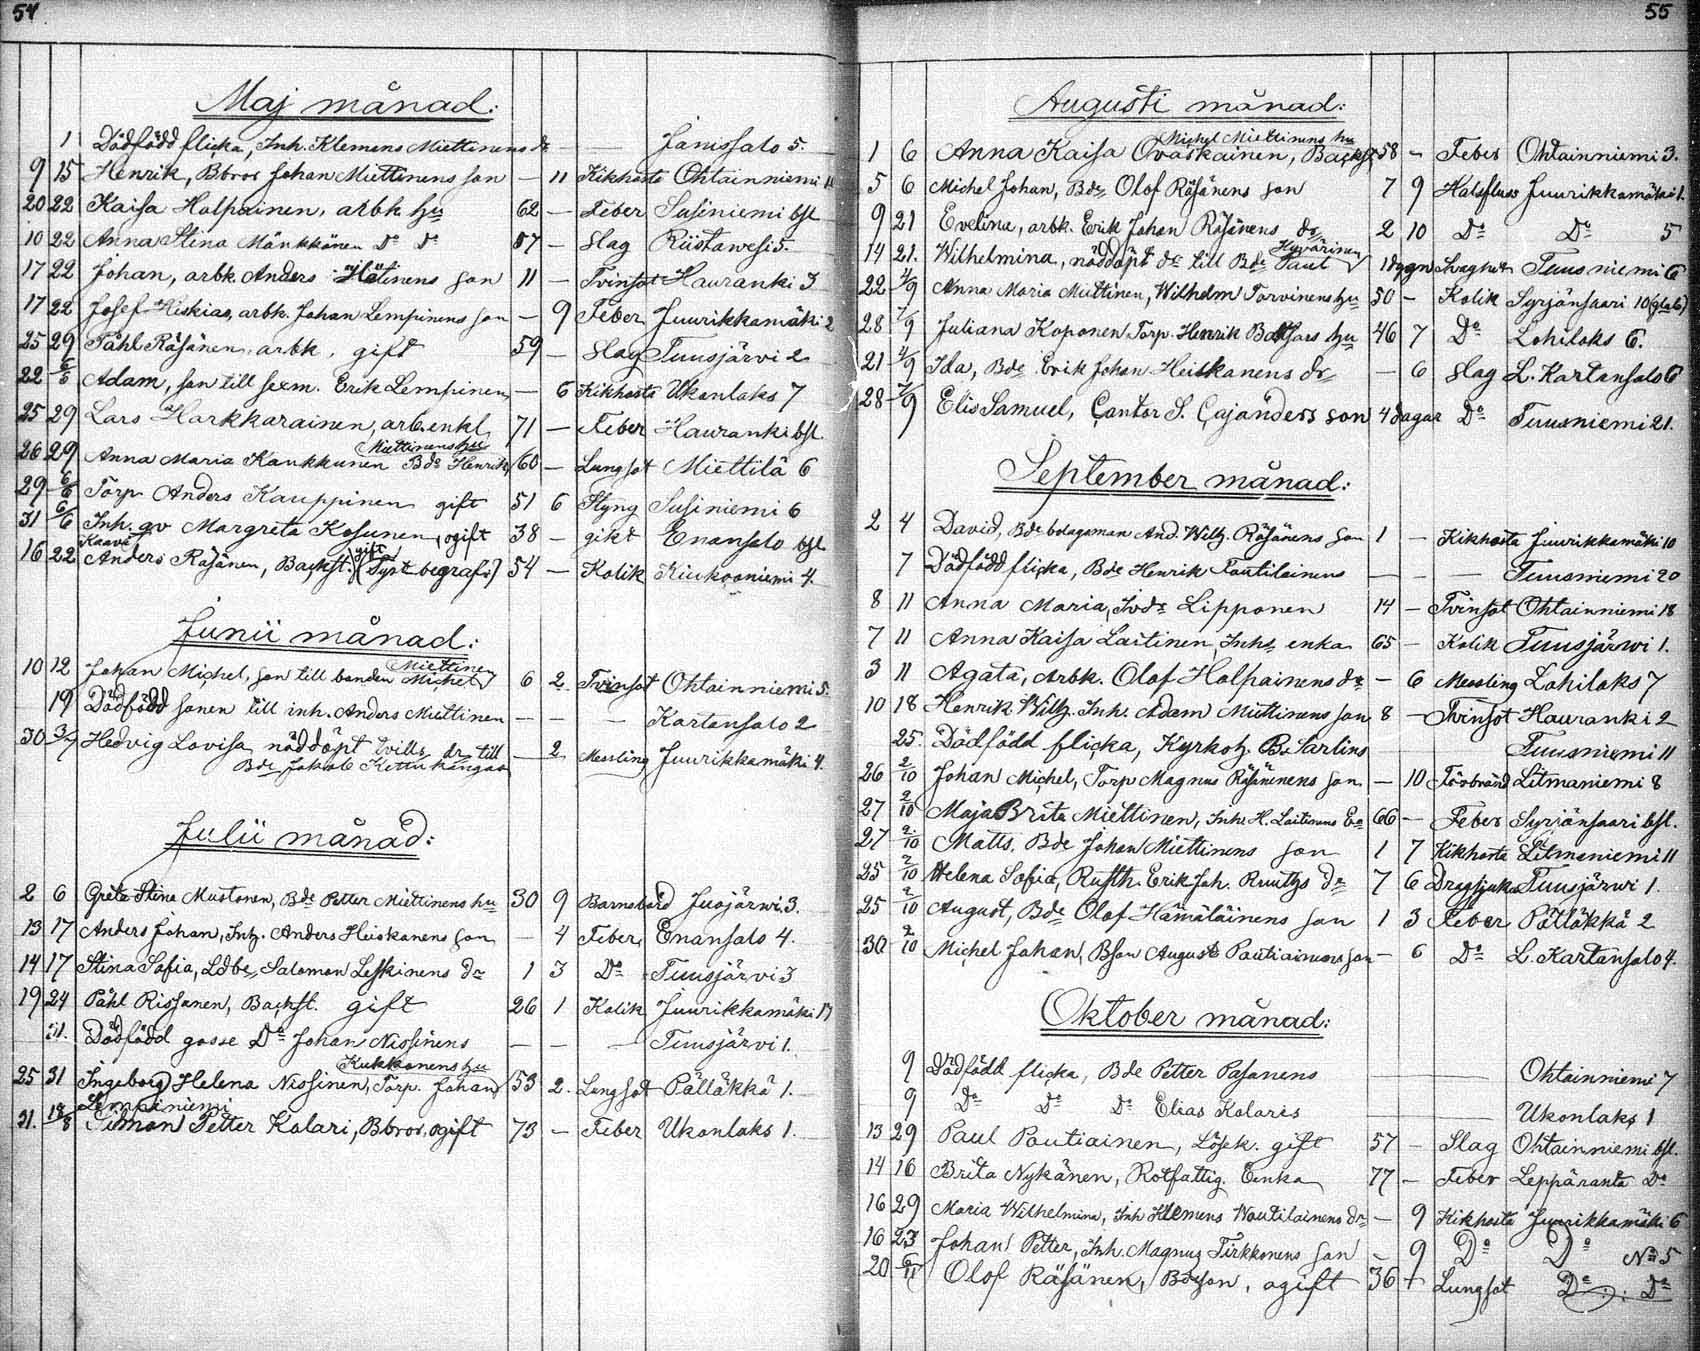 54
Maj månad:
1 Dödfödd flicka, Inh. Klemens Miettinens dr — — Jänissalo 5.
9 15 Henrik, Bbror Johan Miettinens son — 11 Kikhosta Ohtainniemi 11
20 22 Kaisa Holpainen, arbk hu 62 — Feber Susiniemi bfl
10 22 Anna Stina Mänkkönen Do Do 57 — Slag Riistawesi 5.
17 22 Johan, arbk. Anders Hätinens son 11 — Tvinsot Hauranki 3
17 22 Josef Hiskias, arbk. Johan Lempinens son — 9 Feber Juurikkamäki 2
25 29 Påhl Räsänen, arbk. gift 59 — Slag Tuusjärvi 2
22 6/6 Adam, son till Erik Lempinen — 6 Kikhosta Ukonlaks 7
25 29 Lars Harkkarainen, arb. enkl 71 — Feber Hauranki bfl.
26 29 Anna Maria Kaukkunen Bde Henrik Miettinens hu 60 — Lungsot Miettilä 6
29 6/6 Torp Anders Kauppinen gift 51 6 Styng Susiniemi 6
31 6/6 Inh. qv Margreta Kosunen, ogift 38 — gikt Enonsalo bfl
16 22 Kaavi Anders Räsänen, Backst. gift (Tyst begrafv) 54 — Kolik Kiukooniemi 4.
Junii månad:
10 12 Johan Michel, son till bonden Michel Miettinen 6 2 Tvinsot Ohtainniemi 5.
19 Dödfödd sonen till inh. Anders Miettinen — — — Kartansalo 2
30 3/7 Hedvig Lovisa, nöddöpt tvill. dr till — 2 Messling Juurikkamäki 4.
Bde Jakob Kettukangas
Julii månad:
2 6 Greta Stina Mustonen, Bde Petter Miettinens hu 30 9 Barnsbörd Juojärwi 3.
13 17 Anders Johan, Inh. Anders Heiskanens son — 4 Feber Enonsalo 4.
14 17 Stina Sofia, Ldbe Salomon Leskinens dr 1 3 Do Tuusjärvi 3
19 24 Påhl Rissanen, Backst. gift 26 1 Kolik Juurikkamäki 17
31. Dödfödd gosse Do Johan Nissinens — — — Tuusjärvi 1.
25 31 Ingeborg Helena Nissinen, Torp. Johan Kukkonens hu 53 2. Lungsot Pölläkkä 1.
Lempiniemi
31. 18/8 Simon Petter Kolari, Bbror, ogift 73 — Feber Ukonlaks 1.
55
Augusti månad:
1 6 Anna Kaisa Ovaskainen, Backst Michel Miettinens hu 58 — Feber Ohtainniemi 3.
5 6 Michel Johan, Bde Olof Räsänens son 7 9 Halsfluss Juurikkamäki 1.
9 21 Evelina, arbk. Erik Johan Räsänens dr 2 10 Do Do 5
14 21. Wilhelmina, nöddöpt dr till Bde Paul Hyvärinen 1 dygn Svaghet Tuusniemi 6
22 4/9 Anna Maria Miettinen, Wilhelm Torvinens hu 50 — Kolik Syrjänsaari 10
28 7/9 Juliana Koponen Torp. Henrik hu 46 7 Do Lohilaks 6.
21 4/9 Ida, Bde Erik Johan Heiskanens dr — 6 Slag L. Kartansalo 6
28 7/9 Elis Samuel, Cantor S. Cajanders son 4 dagar Do Tuusniemi 21.
September månad:
2 4 David, Bde bolagsman And. Wilh. Räsänens son 1 — Kikhosta Juurikkamäki 10
7 Dödfödd flicka, Bde Henrik Poutilainens — — — Tuusniemi 20
8 11 Anna Maria, Lipponen 14 — Tvinsot Ohtainniemi 18
7 11 Anna Kaisa Laitinen, Inhs enka 65 — Kolik Tuusjärwi 1.
3 11 Agata, Arbk. Olof Holpainens dr — 6 Messling Lohilaks 7
10 18 Henrik Wilh. Inh. Adam Miettinens son 8 — Tvinsot Hauranki 2
25. Dödfödd flicka, Kyrkoh. Br Sarlins Tuusniemi 11
26 2/10 Johan Michel, Torp Magnus Räsänens son — 10 Förbränd Litmaniemi 8
27 2/10 Maja Brita Miettinen, Inh. H. Laitinens Ea 66 — Feber Syrjänsaari bfl.
27 2/10 Matts, Bde Johan Miettinens son 1 7 Kikhosta Litmaniemi 11
25 2/10 Helena Sofia, Rusth. Erik Joh. Ruuths dr 7 6 Dragsjuka Tuusjärwi 1.
25 2/10 August, Bde Olof Hämäläinens son 1 3 Feber Pölläkkä 2
30 2/10 Michel Johan, Bson August Poutiainens son — 6 Do L. Kartansalo 4.
Oktober månad:
9 Dödfödd flicka, Bde Petter Pasanens — Ohtainniemi 7
9 Do Do Do Elias Kolaris — Ukonlaks 1
13 29 Paul Poutiainen, Lösk. gift 57 — Slag Ohtainniemi bfl.
14 16 Brita Nykänen, Rotfattig. Enka 77 — Feber Leppäranta Do
16 29 Maria Wilhelmina, Inh Klemens Woutilainens dr — 9 Kikhosta Juurikkamäki 6
16 23 Johan Petter, Inh. Magnus Tirkkonens son — 9 Do Do No 5
20 6/11 Olof Räsänen, Bdeson, ogift 36 — Lungsot Do Do